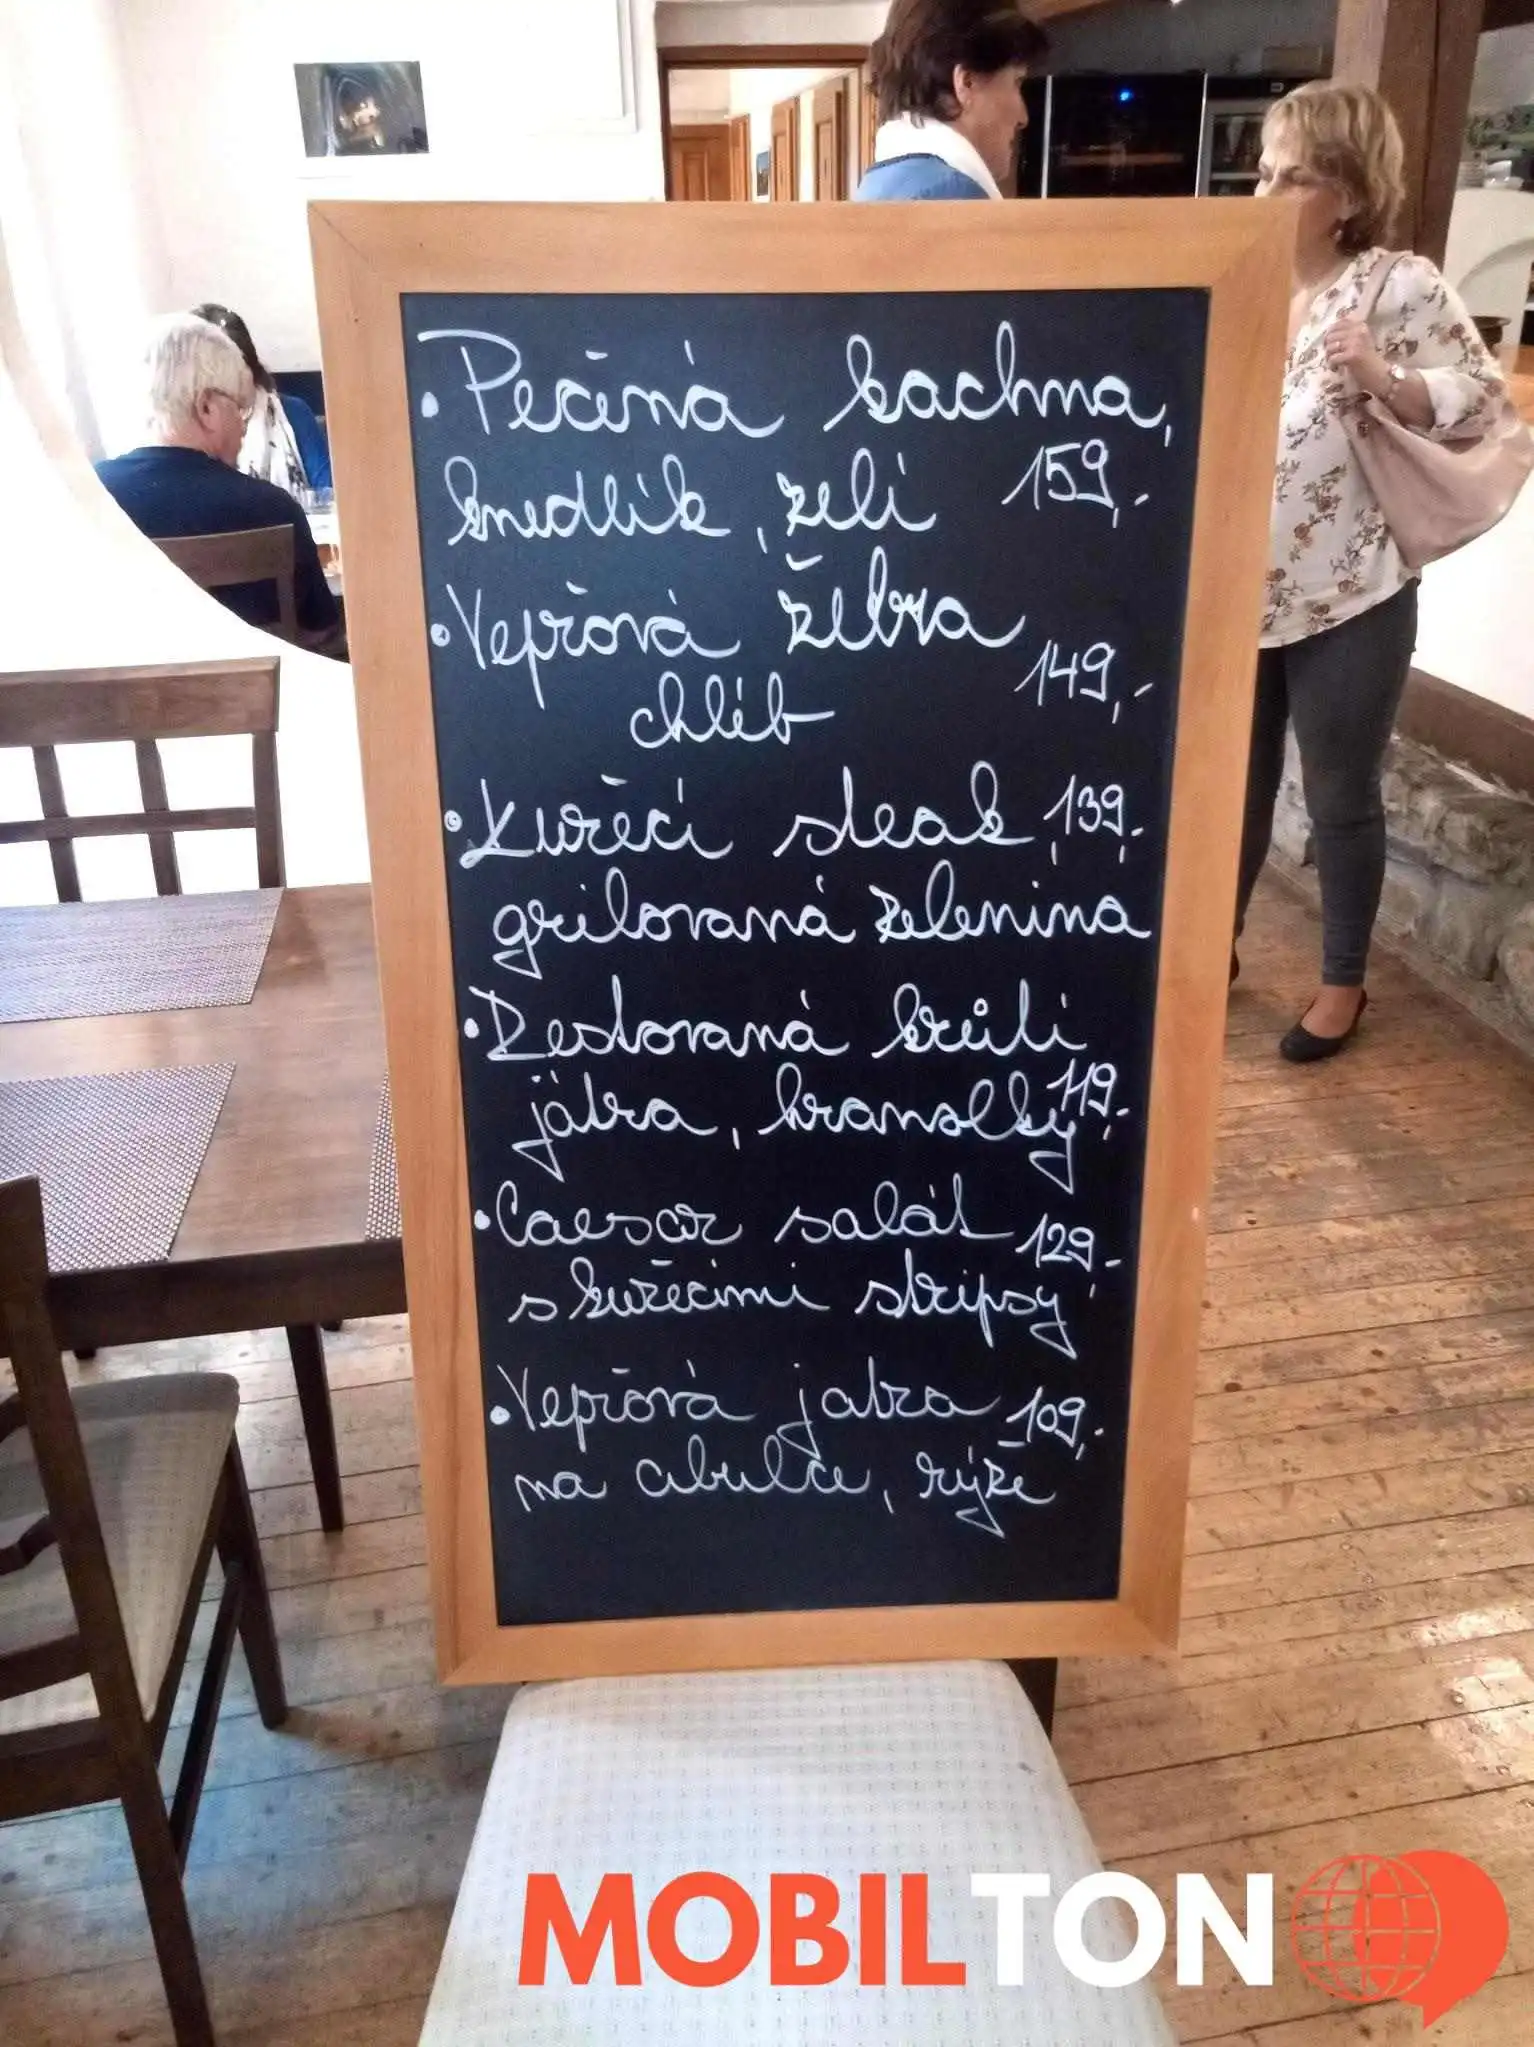 • Pečená kachna,
knedlík, zelí 159,-
• Vepřová žebra
chléb 149,-
• Kuřecí steak, 139,-
grilovaná zelenina
• Restovaná krůtí
játra, hranolky 119,-
• Caesar salát 129,-
s kuřecími stripsy
• Vepřová jatra 109,-
na cibulce, rýže
MOBILTON